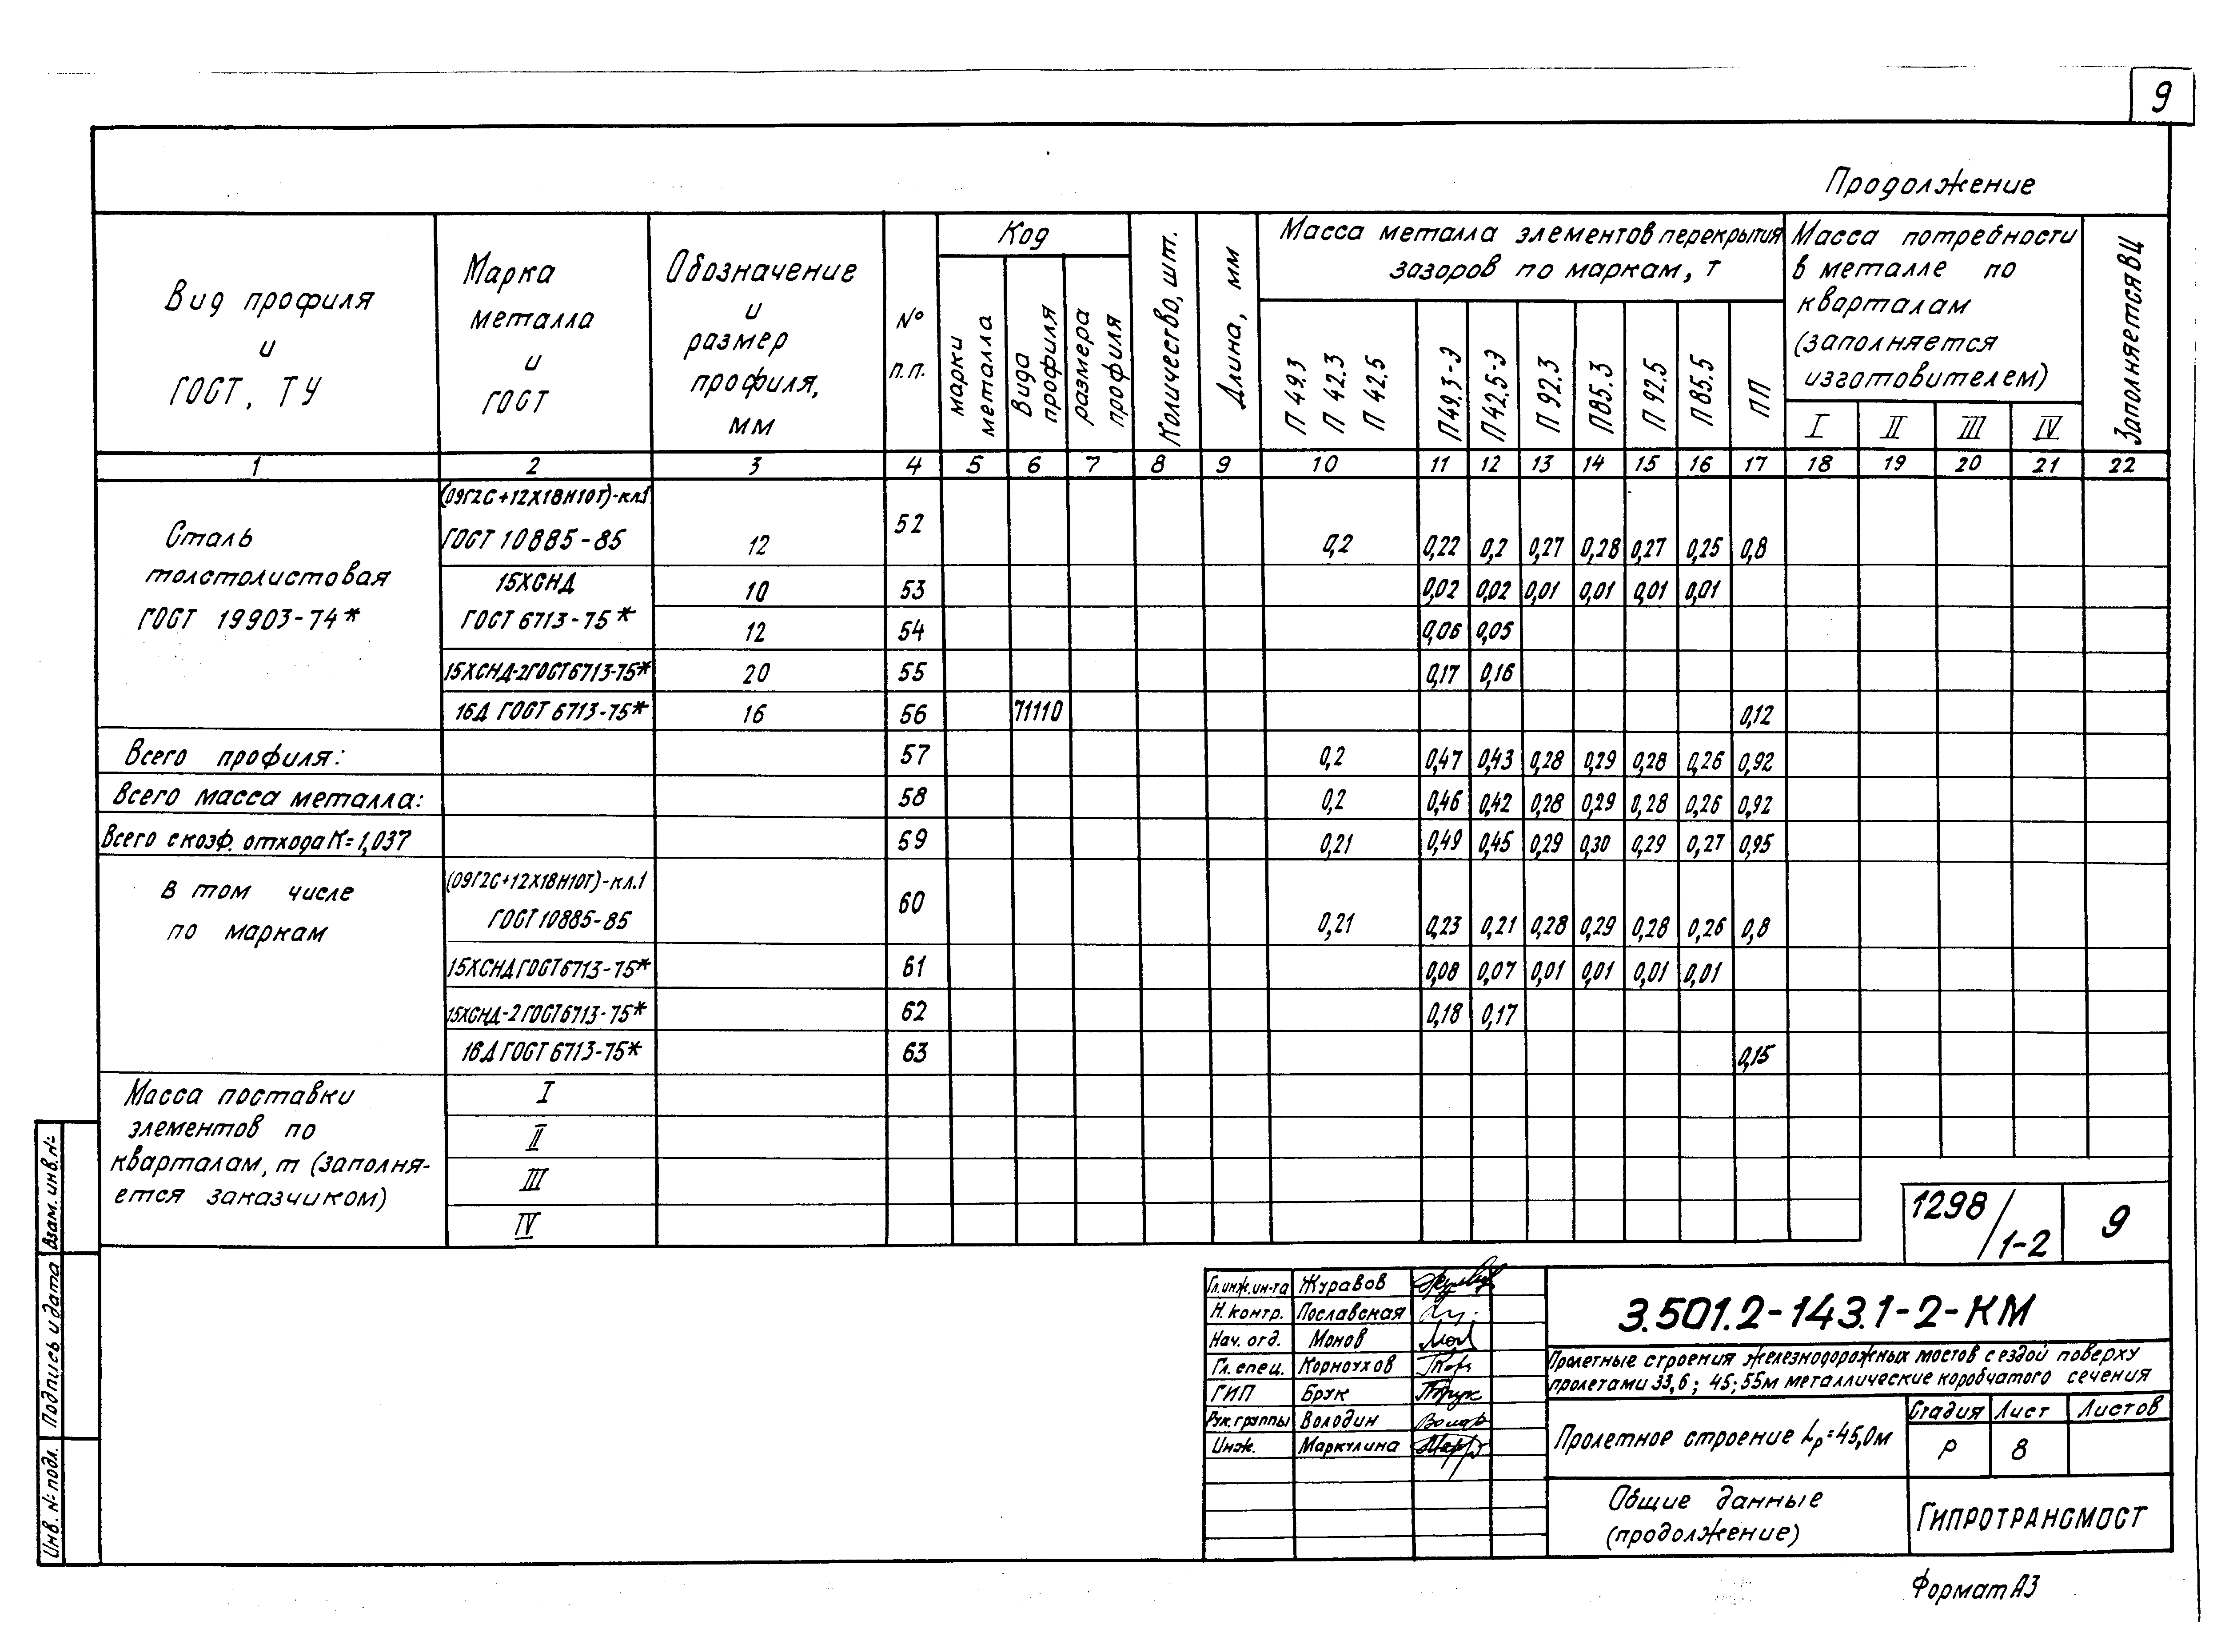 9
Продолжение
Вид профиля
и
ГОСТ, ТУ
Марка
металла
и
ГОСТ
Обозначение
и
размер
профиля,
мм
№
п.п.
Код
марки
металла
Вида
профиля
размера
профиля
Количество, шт.
Длина, мм
Масса металла элементов перекрытия
зазоров по маркам, т
П 49.3
П 42.3
П 42.5
П49.3-Э
П42.5-Э
П 92.3
П85.3
П 92.5
П 85.5
ПП
Масса потребности
в металле по
кварталам
(заполняется
изготовителем)
I II III IV
Заполняется ВЦ
1 2 3 4 5 6 7 8 9 10 11 12 13 14 15 16 17 18 19 20 21 22
Сталь
толстолистовая
ГОСТ 19903-74*
(09Г2С+12Х18Н10Т)-кл.1
ГОСТ 10885-85 12 52 0,2 0,22 0,2 0,27 0,28 0,27 0,25 0,8
15ХСНД
ГОСТ 6713-75*
10 53 0,02 0,02 0,01 0,01 0,01 0,01
12 54 0,06 0,05
15ХСНД-2ГОСТ6713-75* 20 55 0,17 0,16
16Д ГОСТ 6713-75* 16 56 71110 0,12
Всего профиля: 57 0,2 0,47 0,43 0,28 0,29 0,28 0,26 0,92
Всего масса металла: 58 0,2 0,46 0,42 0,28 0,29 0,28 0,26 0,92
Всего с коэф. отхода К=1,037 59 0,21 0,49 0,45 0,29 0,30 0,29 0,27 0,95
В том числе
по маркам
(09Г2С+12Х18Н10Т)-кл.1
ГОСТ 10885-85 60 0,21 0,23 0,21 0,28 0,29 0,28 0,26 0,8
15ХСНД ГОСТ6713-75* 61 0,08 0,07 0,01 0,01 0,01 0,01
15ХСНД-2 ГОСТ6713-75* 62 0,18 0,17
16Д ГОСТ 6713-75* 63 0,15
Масса поставки
элементов по
кварталам, т (заполня-
ется заказчиком)
I
II
III
IV
Взам. инв. №
Подпись и дата
Инв. № подл.
1298/1-2 9
Гл.инж.ин-та Журавов
Н. контр. Пославская
Нач. отд. Монов
Гл. спец. Корноухов
ГИП Брук
Рук. группы Володин
Инж. Маркулина
3.501.2-143.1-2-КМ
Пролетные строения железнодорожных мостов с ездой поверху
пролетами 33,6; 45; 55м металлические коробчатого сечения
Пролетное строение Lр=45,0м
Стадия Лист Листов
Р 8
Общие данные
(продолжение)
ГИПРОТРАНСМОСТ
Формат А3